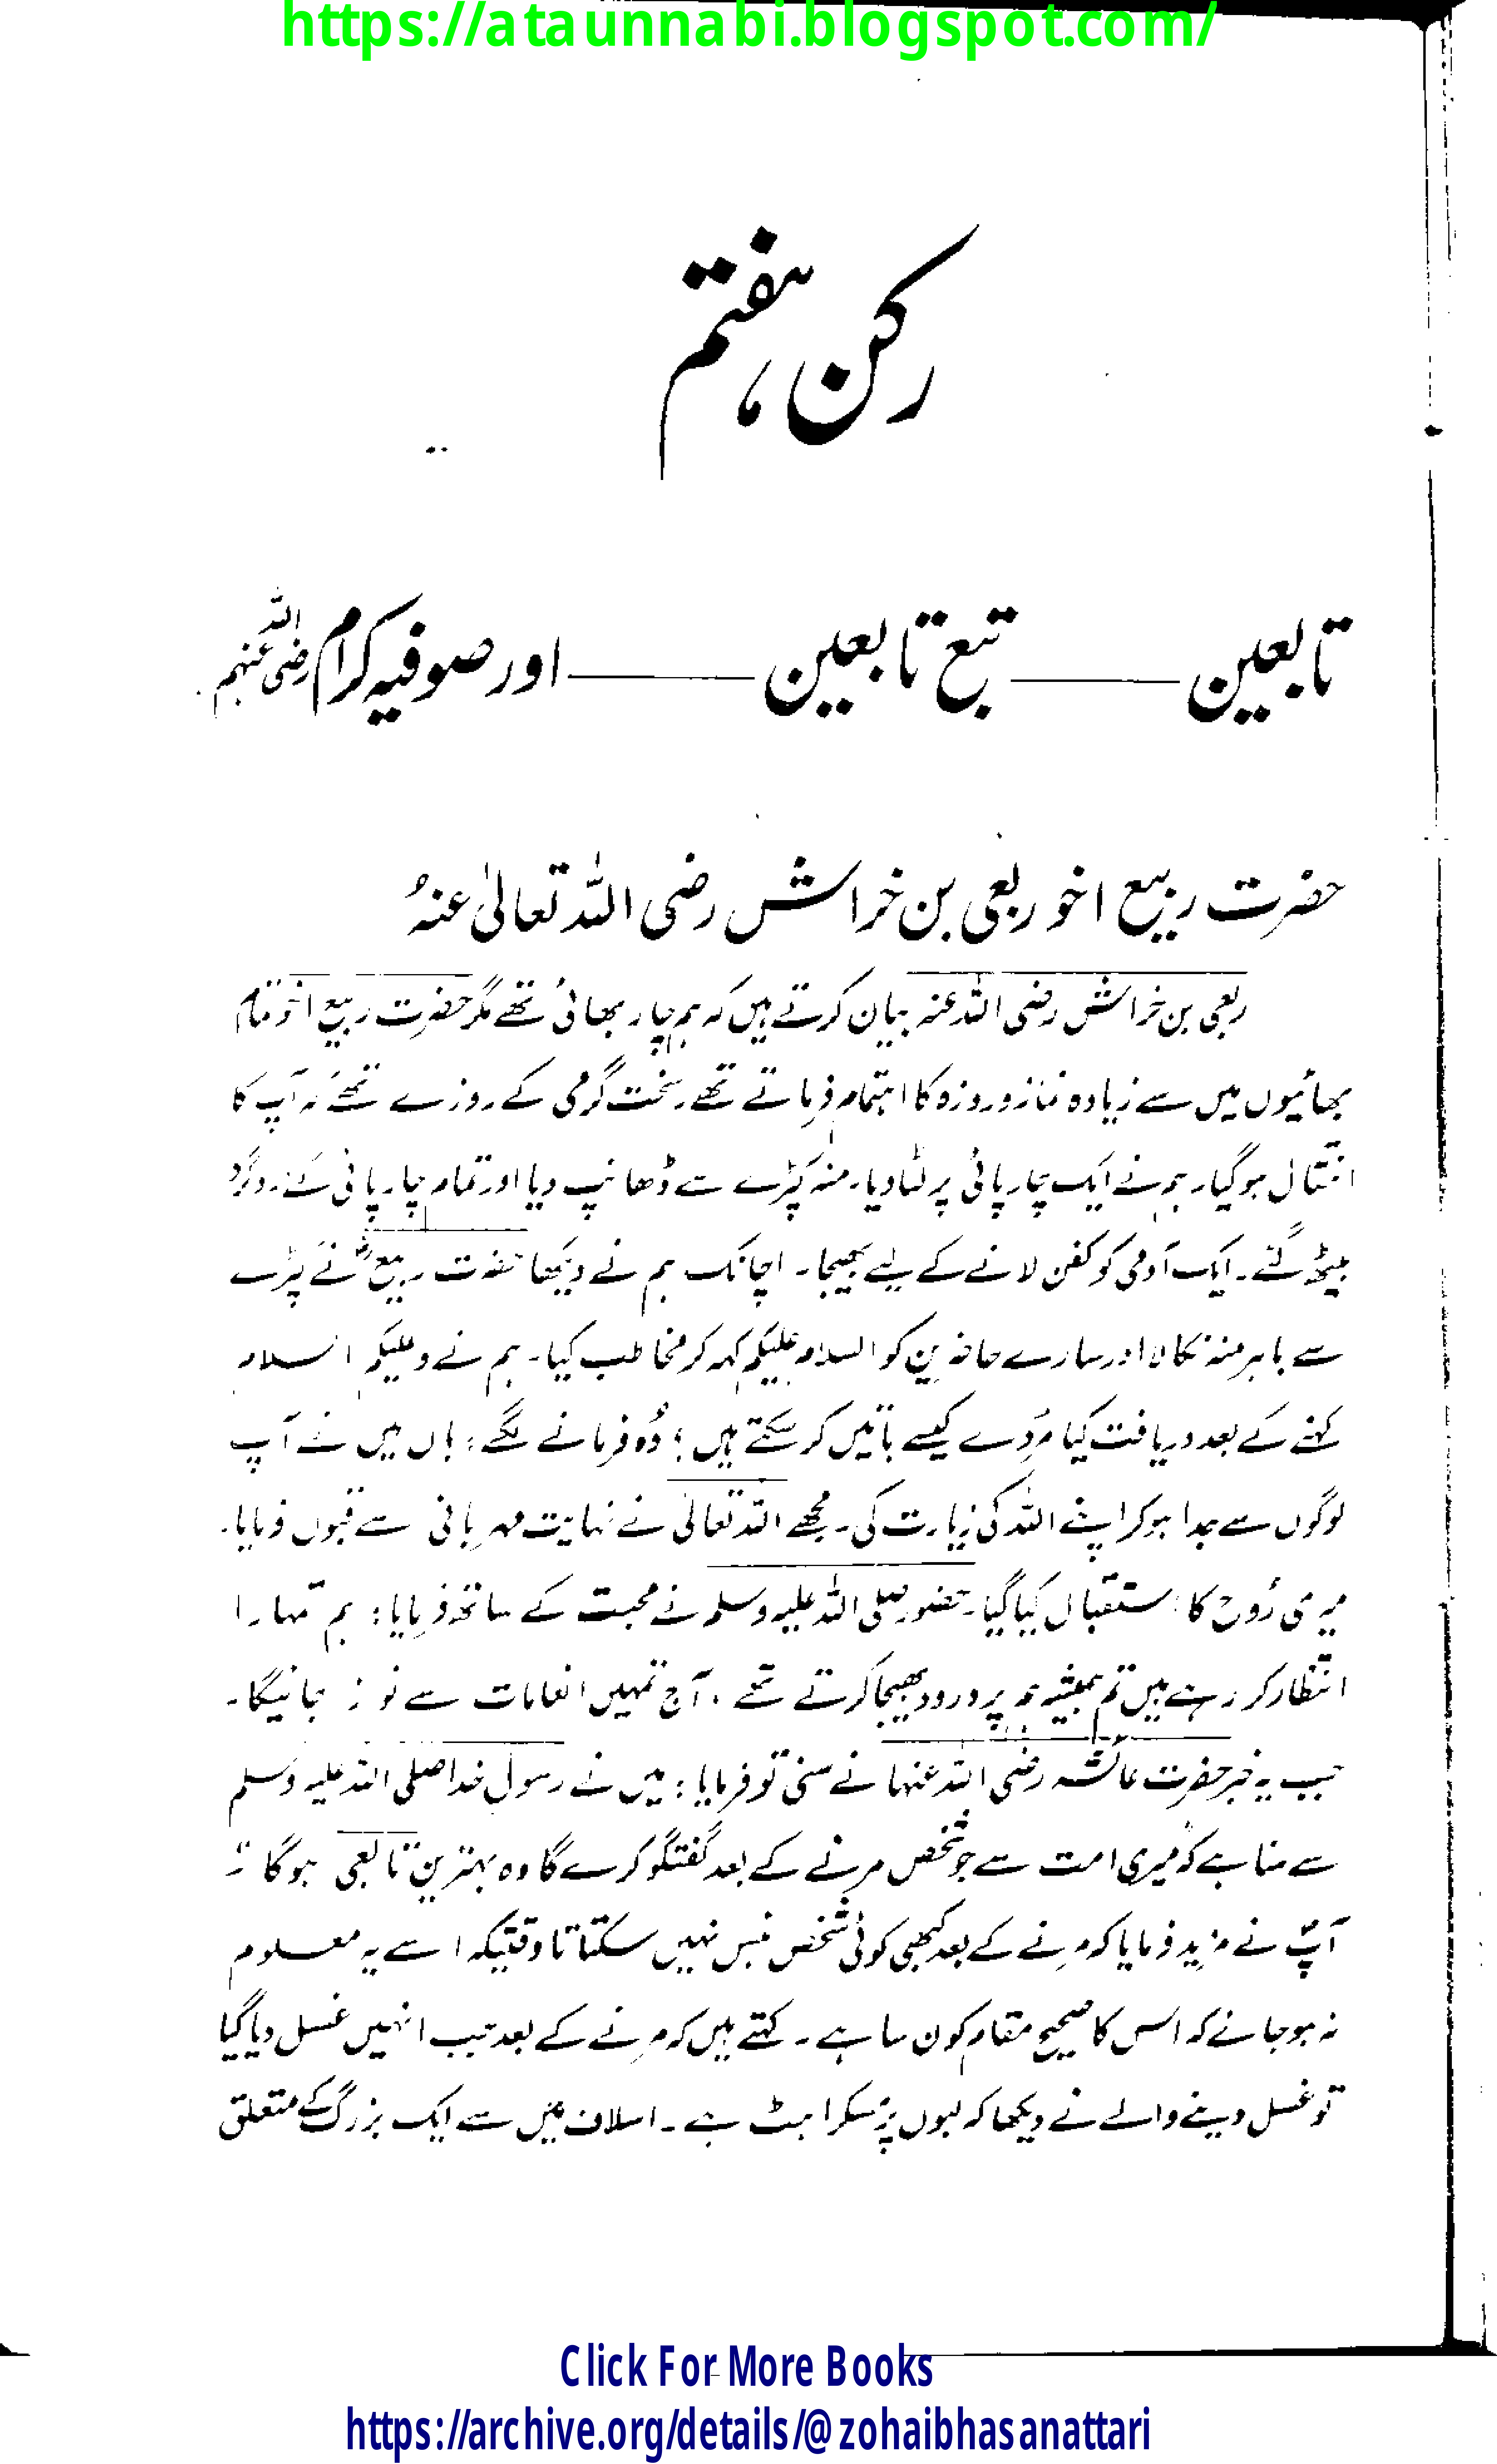 https://ataunnabi.blogspot.com/
رکن ہفتم
تابعین ——— تبع تابعین ——— اور صوفیہ کرام رضی اللہ عنہم
حضرت ربیع اخو ربعی بن خراش رضی اللہ تعالیٰ عنہٗ
ربعی بن خراش رضی اللہ عنہ بیان کرتے ہیں کہ ہم چار بھائی تھے مگر حضرت ربیع اخو تمام
بھائیوں میں سے زیادہ نماز و روزہ کا اہتمام فرماتے تھے۔ سخت گرمی کے روزے تھے کہ آپ کا
انتقال ہوگیا۔ ہم نے ایک چارپائی پر لٹا دیا۔ منہ کپڑے سے ڈھانپ دیا اور تمام چارپائی کے اردگرد
بیٹھ گئے۔ ایک آدمی کو کفن لانے کے لیے بھیجا۔ اچانک ہم نے دیکھا حضرت ربیعؓ نے کپڑے
سے باہر منہ نکالا اور سارے حاضرین کو السلام علیکم کہہ کر مخاطب کیا۔ ہم نے وعلیکم السلام
کہنے کے بعد دریافت کیا مُردے کیسے باتیں کر سکتے ہیں؟ وُہ فرمانے لگے: ہاں میں نے آپ
لوگوں سے جدا ہوکر اپنے اللہ کی زیارت کی۔ مجھے اللہ تعالیٰ نے نہایت مہربانی سے قبول فرمایا۔
میری رُوح کا استقبال کیا گیا۔ حضور صلی اللہ علیہ وسلم نے محبت کے ساتھ فرمایا: ہم تمہارا
انتظار کر رہے ہیں تم ہمیشہ ہم پر درود بھیجا کرتے تھے، آج تمہیں انعامات سے نوازا جائیگا۔
جب یہ خبر حضرت عائشہ رضی اللہ عنہا نے سنی تو فرمایا: میں نے رسولِ خدا صلی اللہ علیہ وسلم
سے سنا ہے کہ میری امت سے جو شخص مرنے کے بعد گفتگو کرے گا وہ بہترین تابعی ہوگا۔
آپؓ نے مزید فرمایا کہ مرنے کے بعد کبھی کوئی شخص ہنس نہیں سکتا تاوقتیکہ اسے یہ معلوم
نہ ہو جائے کہ اس کا صحیح مقام کون سا ہے۔ کہتے ہیں کہ مرنے کے بعد جب انہیں غسل دیا گیا
تو غسل دینے والے نے دیکھا کہ لبوں پر مسکراہٹ ہے۔ اسلاف میں سے ایک بزرگ کے متعلق
Click For More Books
https://archive.org/details/@zohaibhasanattari